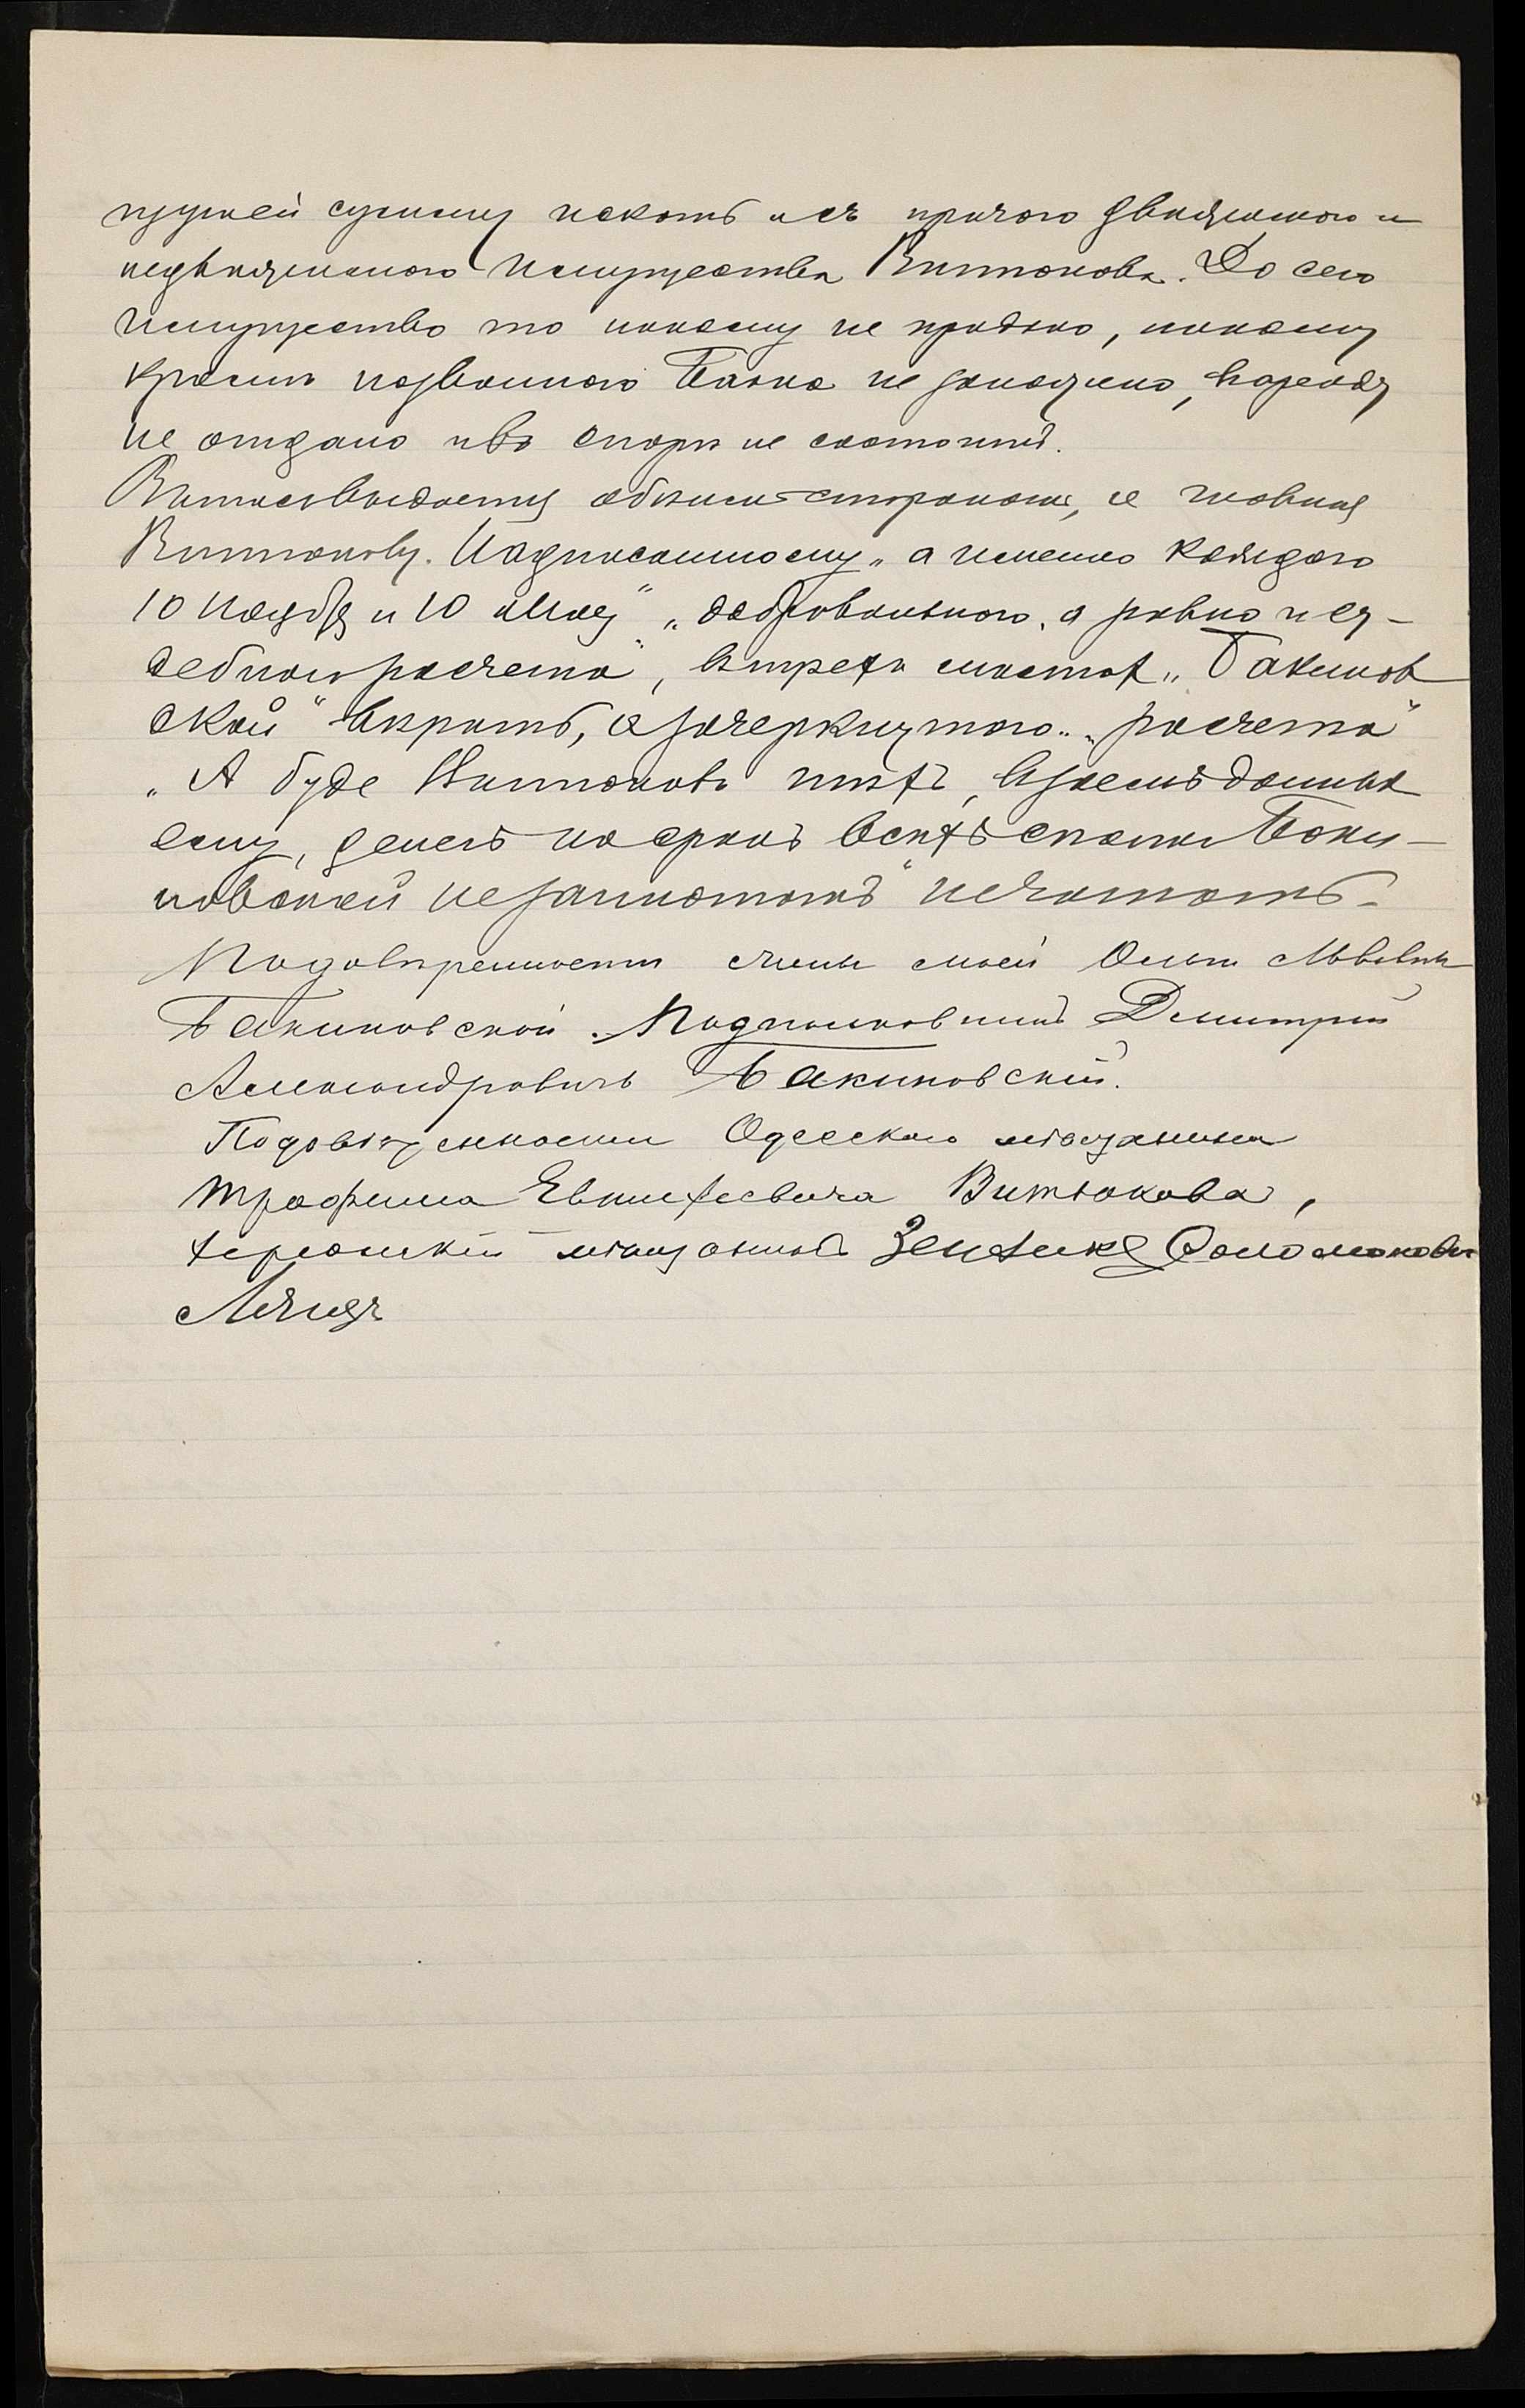 нужней сумму искать и съ прочаго движимаго и
недвижимаго имущества Витюкова. До сего
имущество то никому не продано, никому
кроме названнаго Банка не заложено, въ аренду
не отдано и въ споръ не состоитъ.
Выпись выдается обѣимъ сторонамъ, а главная
Витюкову. Надписанному „а именно каждаго
10 Ноября и 10 Мая“ „добровольнаго, а равно и су-
дебнаго расчета“, въ трехъ мѣстахъ „Бакинов
ской“ вѣрить, а зачеркнутаго „расчета“
„А буде Витюковъ тѣхъ, взаемъ данныхъ
ему, денегъ на срокъ всѣхъ сполна Баки-
новской незаплатитъ“ нечитать.
По довѣренности жены моей Ольги Львовны
Бакиновской. Подполковникъ Дмитрій
Александровичъ Бакиновскій.
По довѣренности Одесскаго мѣщанина
Трофима Евтифеевича Витюкова,
херсонскій мѣщанинъ Соломонови